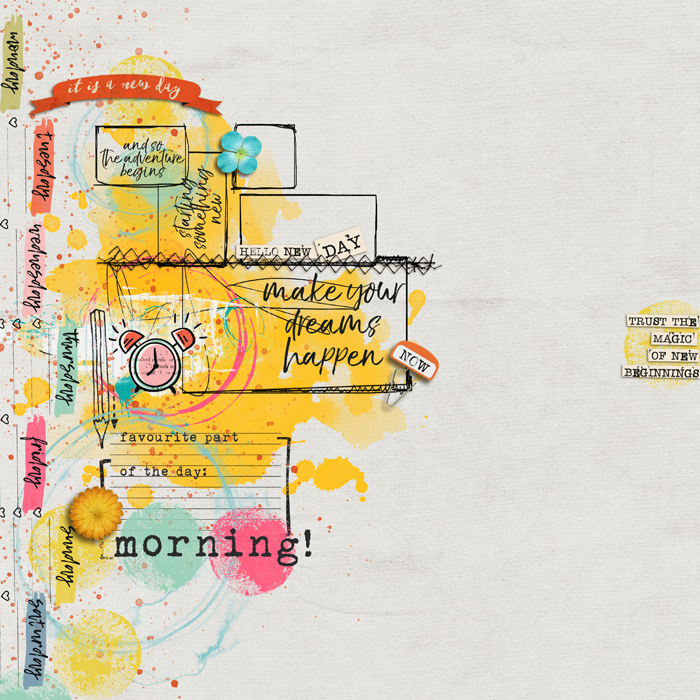 monday
it is a new day
tuesday
and so
the adventure
begins
starting
something
new
wednesday
HELLO NEW DAY
make your
dreams
happen
NOW
thursday
TRUST THE
MAGIC
OF NEW
BEGINNINGS
friday
favourite part
of the day:
morning!
sunday
saturday